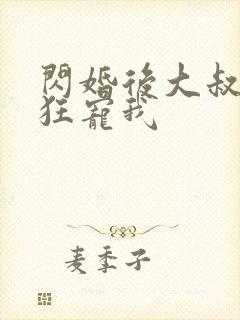 閃婚後大叔
狂寵我
麦季子